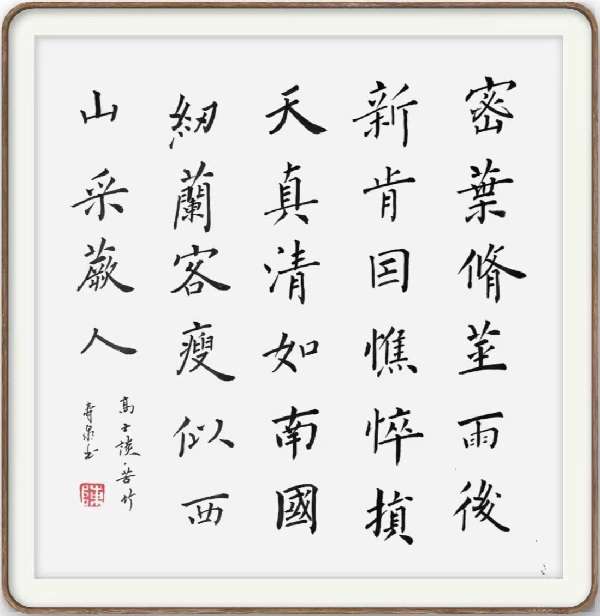 密葉脩莖雨後
新肯囙憔悴損
天真清如南國
紉蘭客瘦似西
山采蕨人
高士談·苦竹
寿泉书
陳